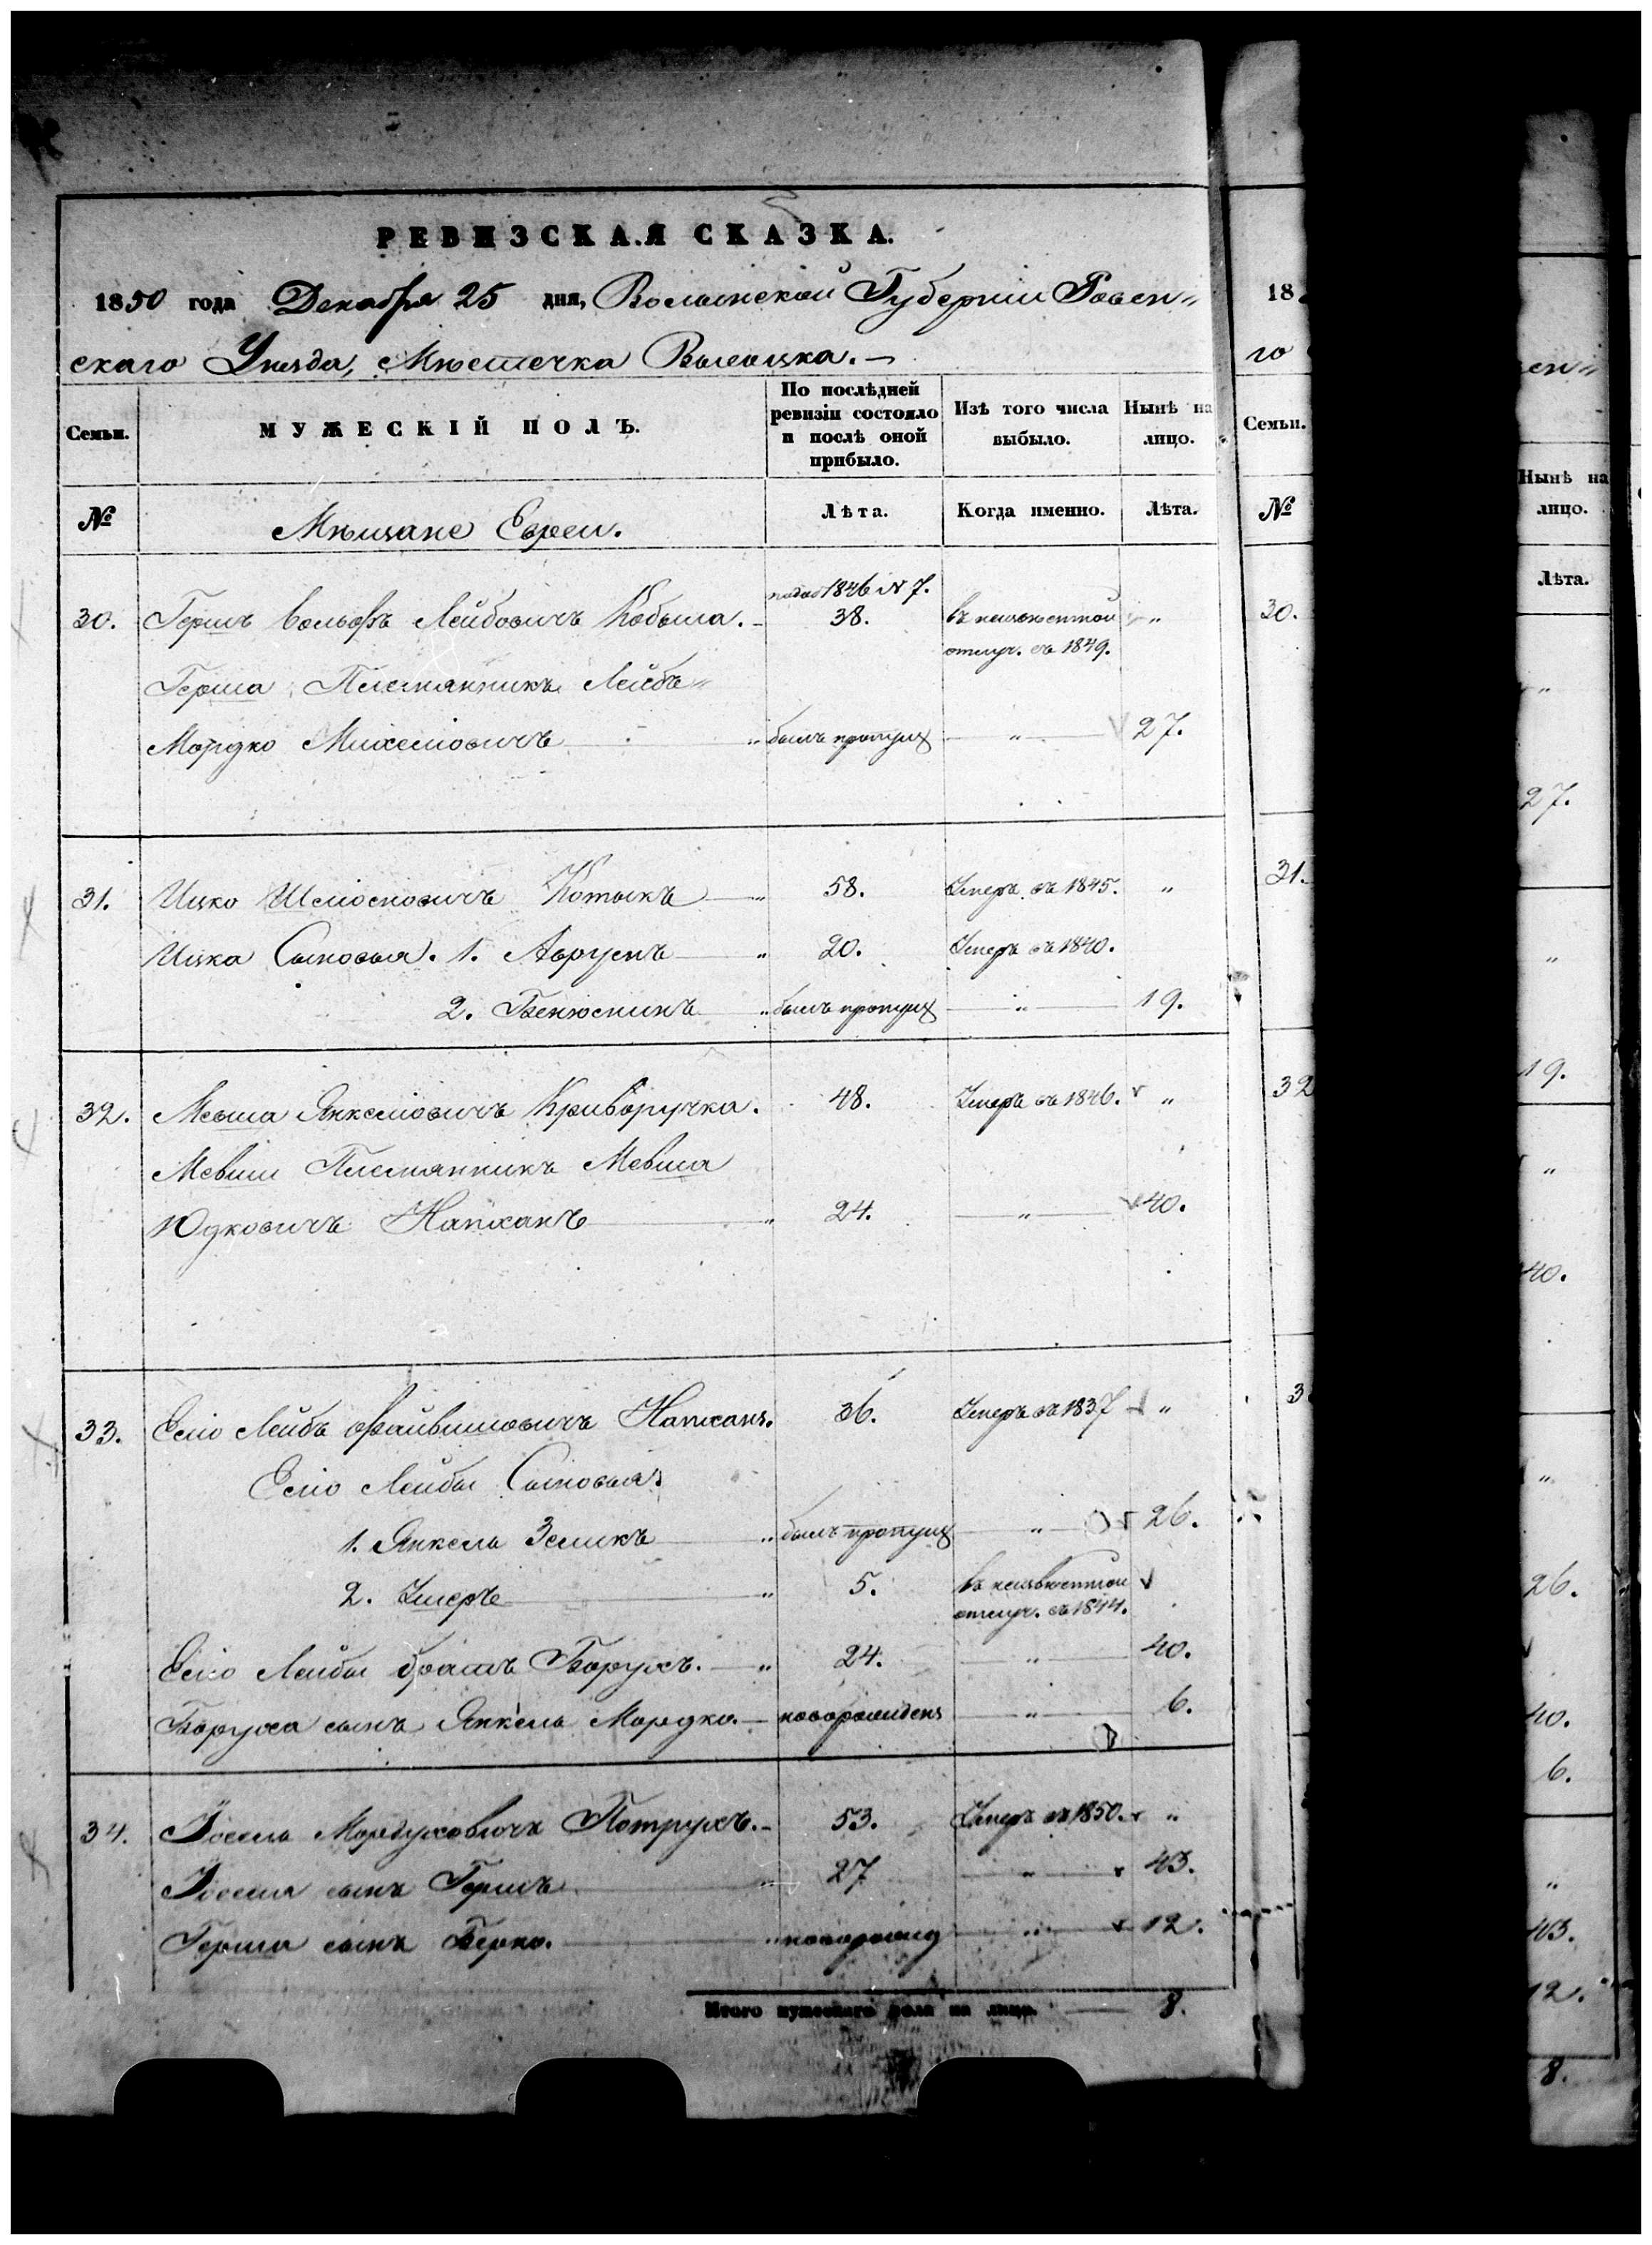 РЕВИЗСКАЯ СКАЗКА.
1850 года Декабря 25 дня, Волынской Губерніи Ровен„
скаго Уѣзда, Мѣстечка Высоцка. —
Семьи.
МУЖЕСКІЙ ПОЛЪ.
По послѣдней ревизіи состояло и послѣ оной прибыло.
Изъ того числа выбыло.
Нынѣ на лицо.
№
Мѣщане Евреи.
Лѣта.
Когда именно.
Лѣта.
1846 N 7.
30. Гершъ Вольфъ Лейбовичъ Кобыла. 38. въ неизвѣстной „
отлуч. съ 1849.
Герша Племянникъ Лейбъ„
Мордко Михелiовичъ „ былъ пропущ „ 27.
31. Ицко Шлiомовичъ Котыкъ „ 58. Умеръ въ 1845. „
Ицка Сыновья. 1. Аврумъ „ 20. Умеръ въ 1840.
2. Бенюминъ „ былъ пропущ „ 19.
32. Мевша Янкелiовичъ Криворучка. 48. Умеръ въ 1846. „
Мевши Племянникъ Мевша
Юдковичъ „ 24. „ 40.
33. Лейбъ Файвишовичъ 36. Умеръ въ 1837 „
Лейбы Сыновья:
1. Янкель Зеликъ „ былъ пропущ „ 26.
2. Шмеръ „ 5. въ неизвѣстной
отлуч. съ 1844.
Лейбы братъ Борухъ. — „ 24. „ 40.
Боруха сынъ Янкель Мордко. — новорожденъ „ 6.
34. Іосель Мордуховичъ Потрухъ. 53. Умеръ въ 1850. „
Іоселя сынъ Гершъ „ 27 „ 43.
Герша сынъ Берко. „ новорожд „ 12.
Итого мужескаго пола на лицо. — 8.
18
го
Семьи.
№
30.
31.
32
3
ен„
Нынѣ на
лицо.
Лѣта.
„
27.
„
19.
„
40.
„
26.
40.
6.
„
43.
12.
8.